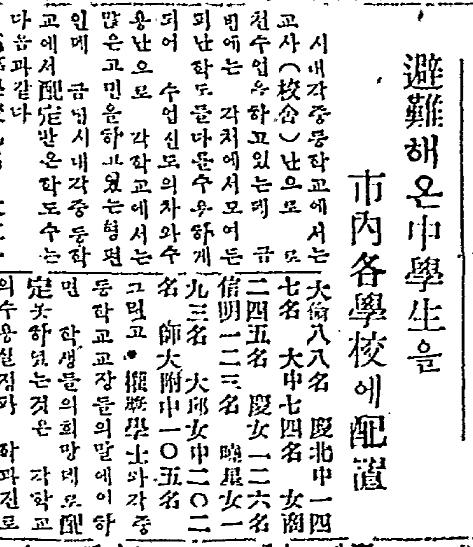 避難해온中學生을
市內各學校에配置
시내각중등학교에서는
고사(校舍)난으로 로
천수업을하고있는데 금
번에는 각처에서모여든
피난학도들다들수용하게
되어 수업진도의차와수
용난으로 각학교에서는
많은고민을하고있는형편
인데 금번시내각중등학
교에서配定받은학도수는
다음과같다
大倫八八名 慶北中一四
七名 大中七四名 女商
二四五名 慶女一二六名
信明一二三名 曉星女一
九三名 大邱女中二〇二
名 師大附中一〇五名
獎學士와각중
등학교교장들의말에이하
면 학생들의희망데로配
定못하였는것은 각학교
의수용실정과 학과진로